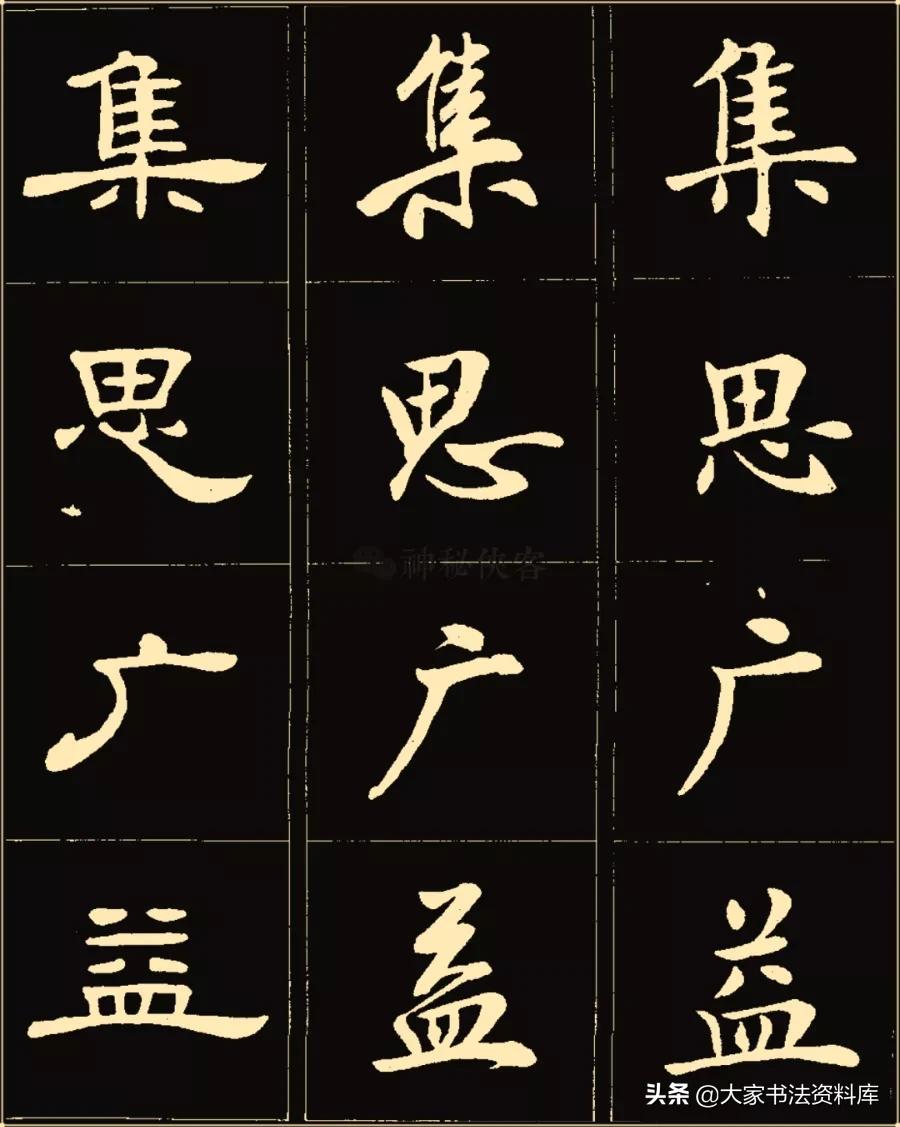 集 集 集
思 思 思
广 广 广
益 益 益
神秘侠客
头条 @大家书法资料库